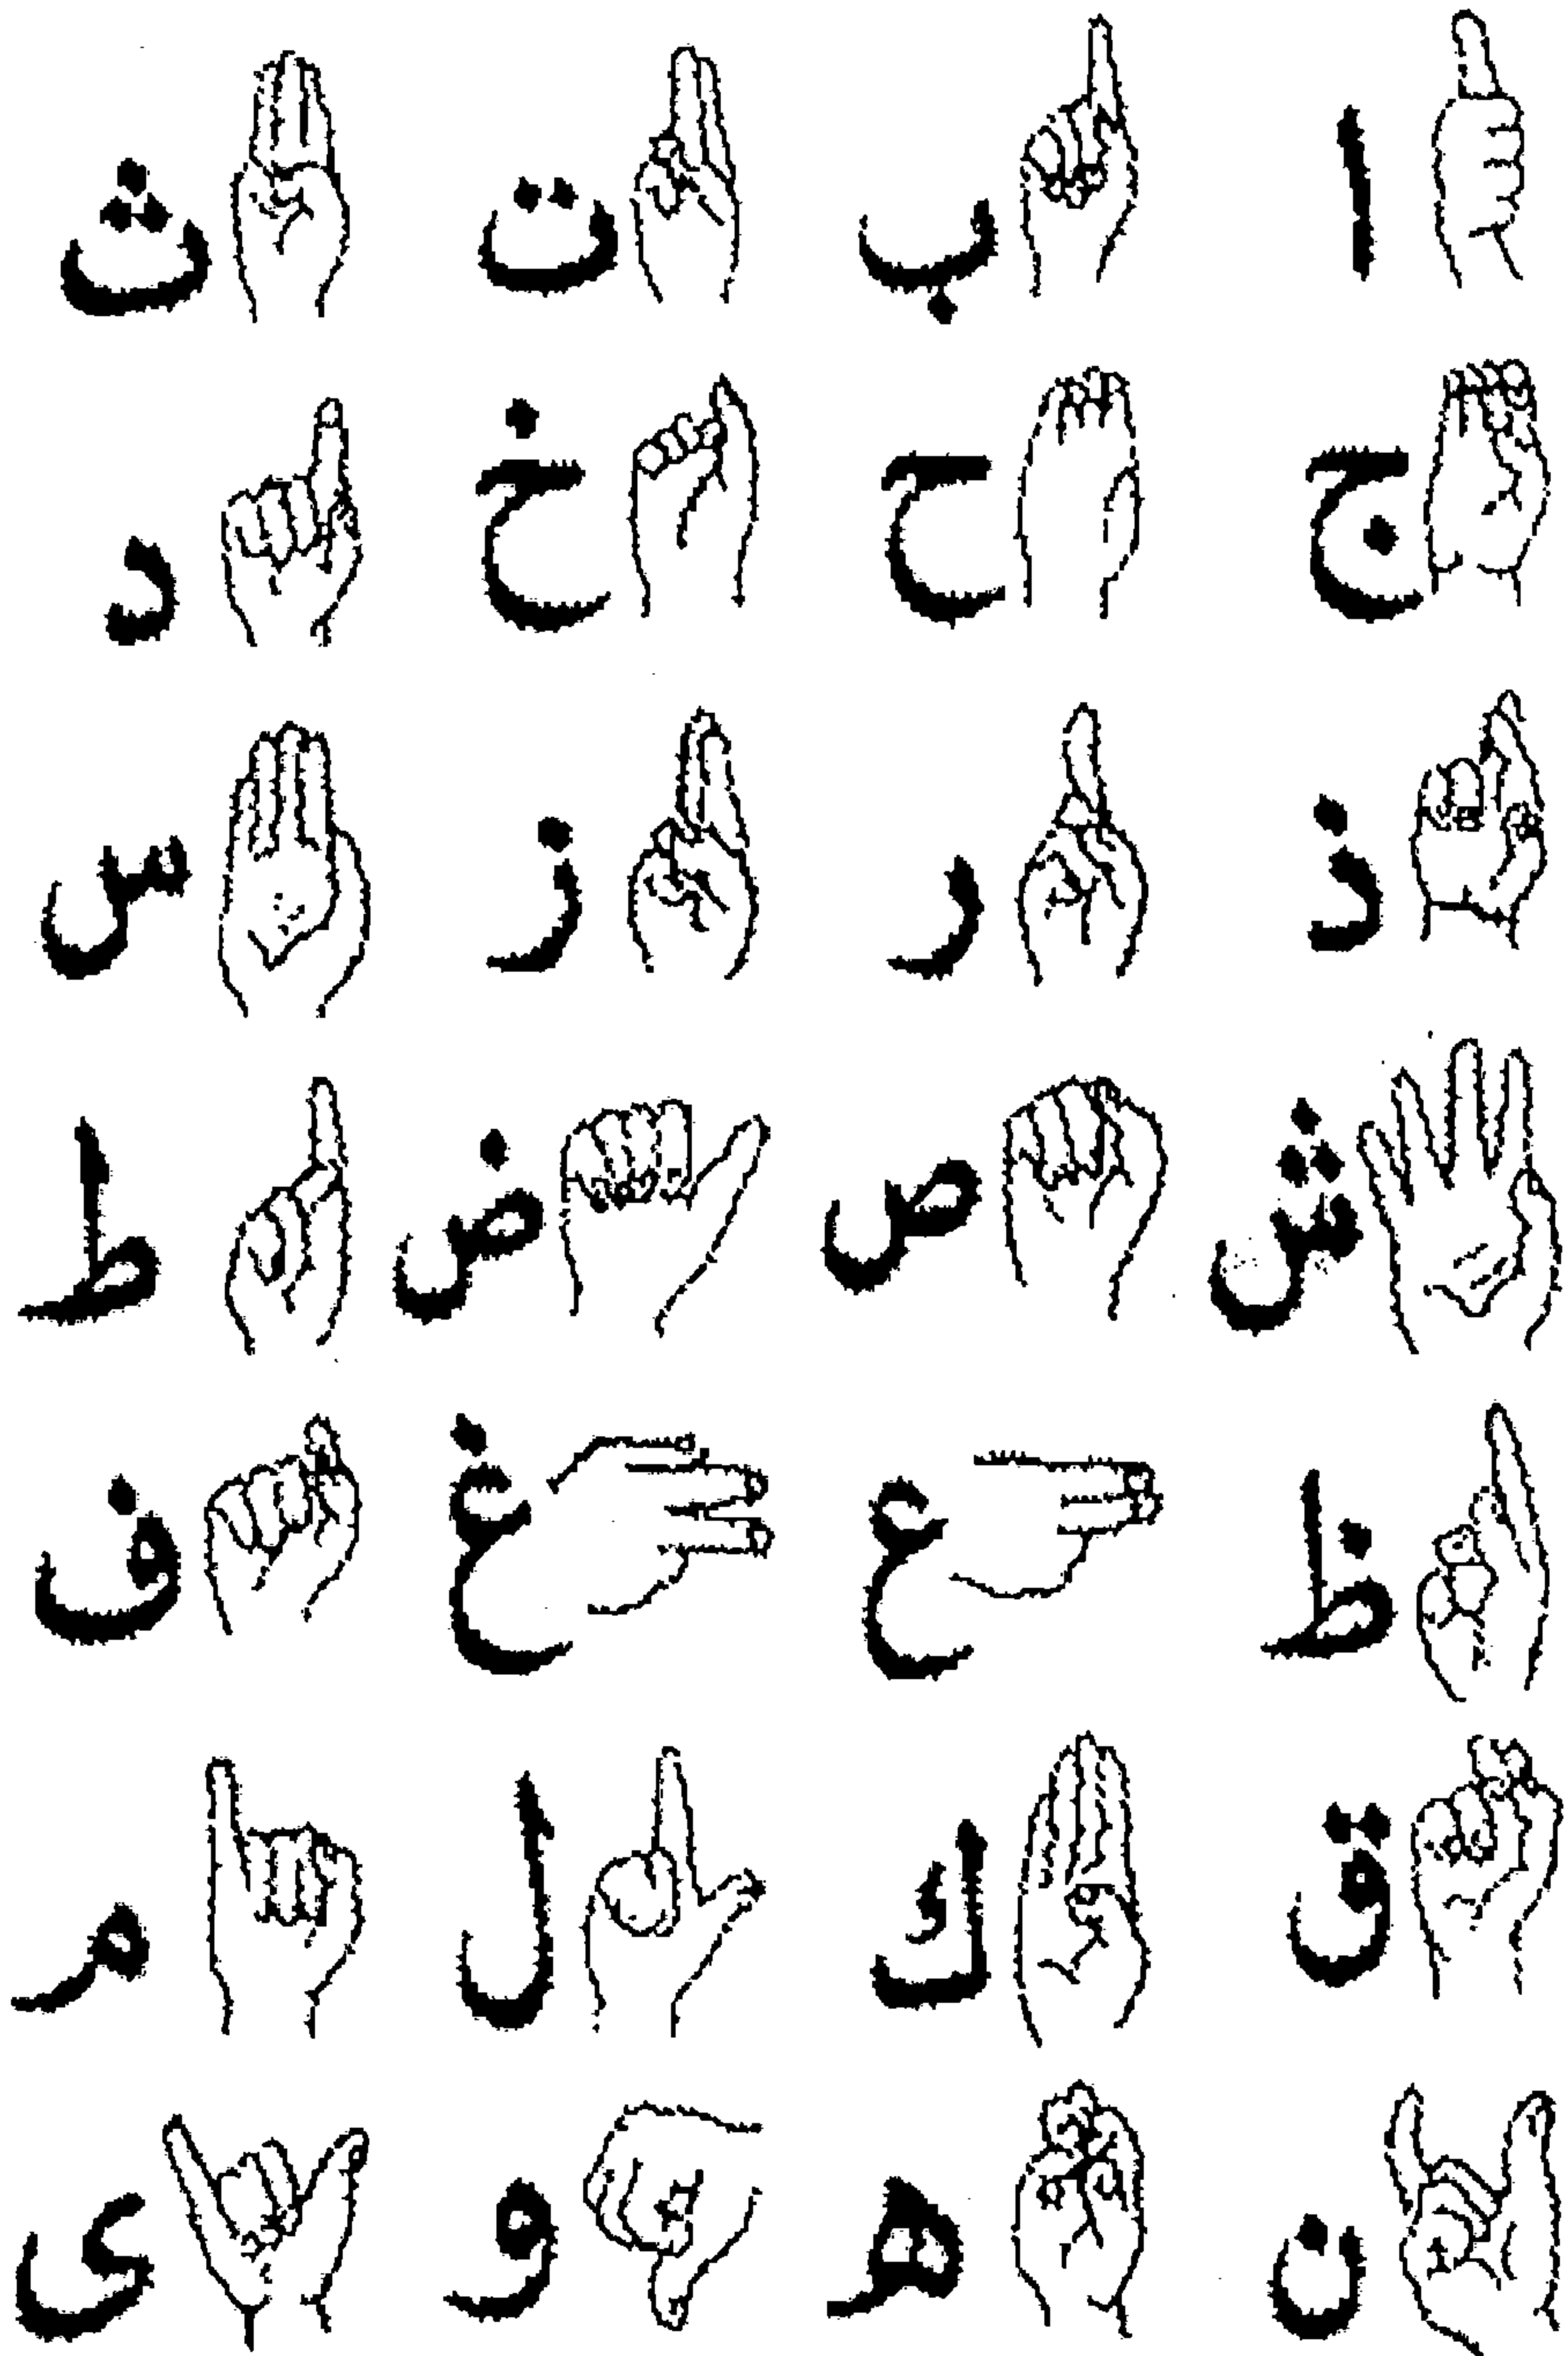 ا ب ت ث
ج ح خ د
ذ ر ز س
ش ص ض ط
ظ ع غ ف
ق ك ل م
ن ه و ى